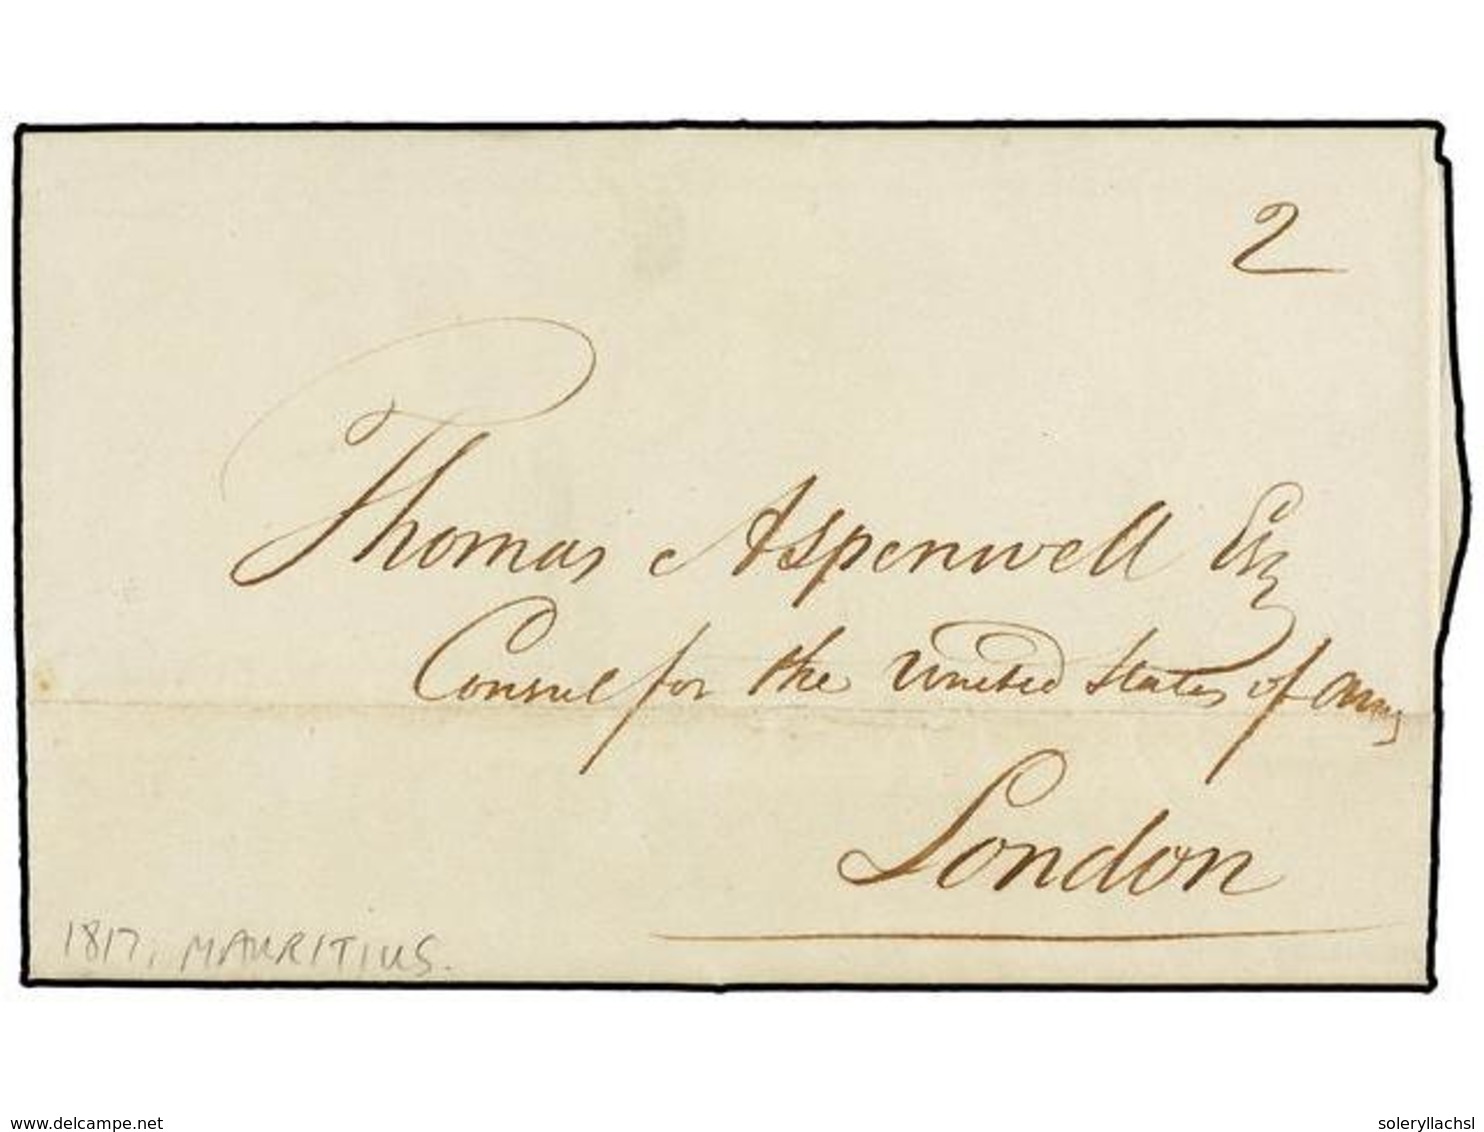 2
Thomas Aspenwell Esq
Consul for the United States of
London
1817, MAURITIUS.
www.delcampe.net
soleryllachsl